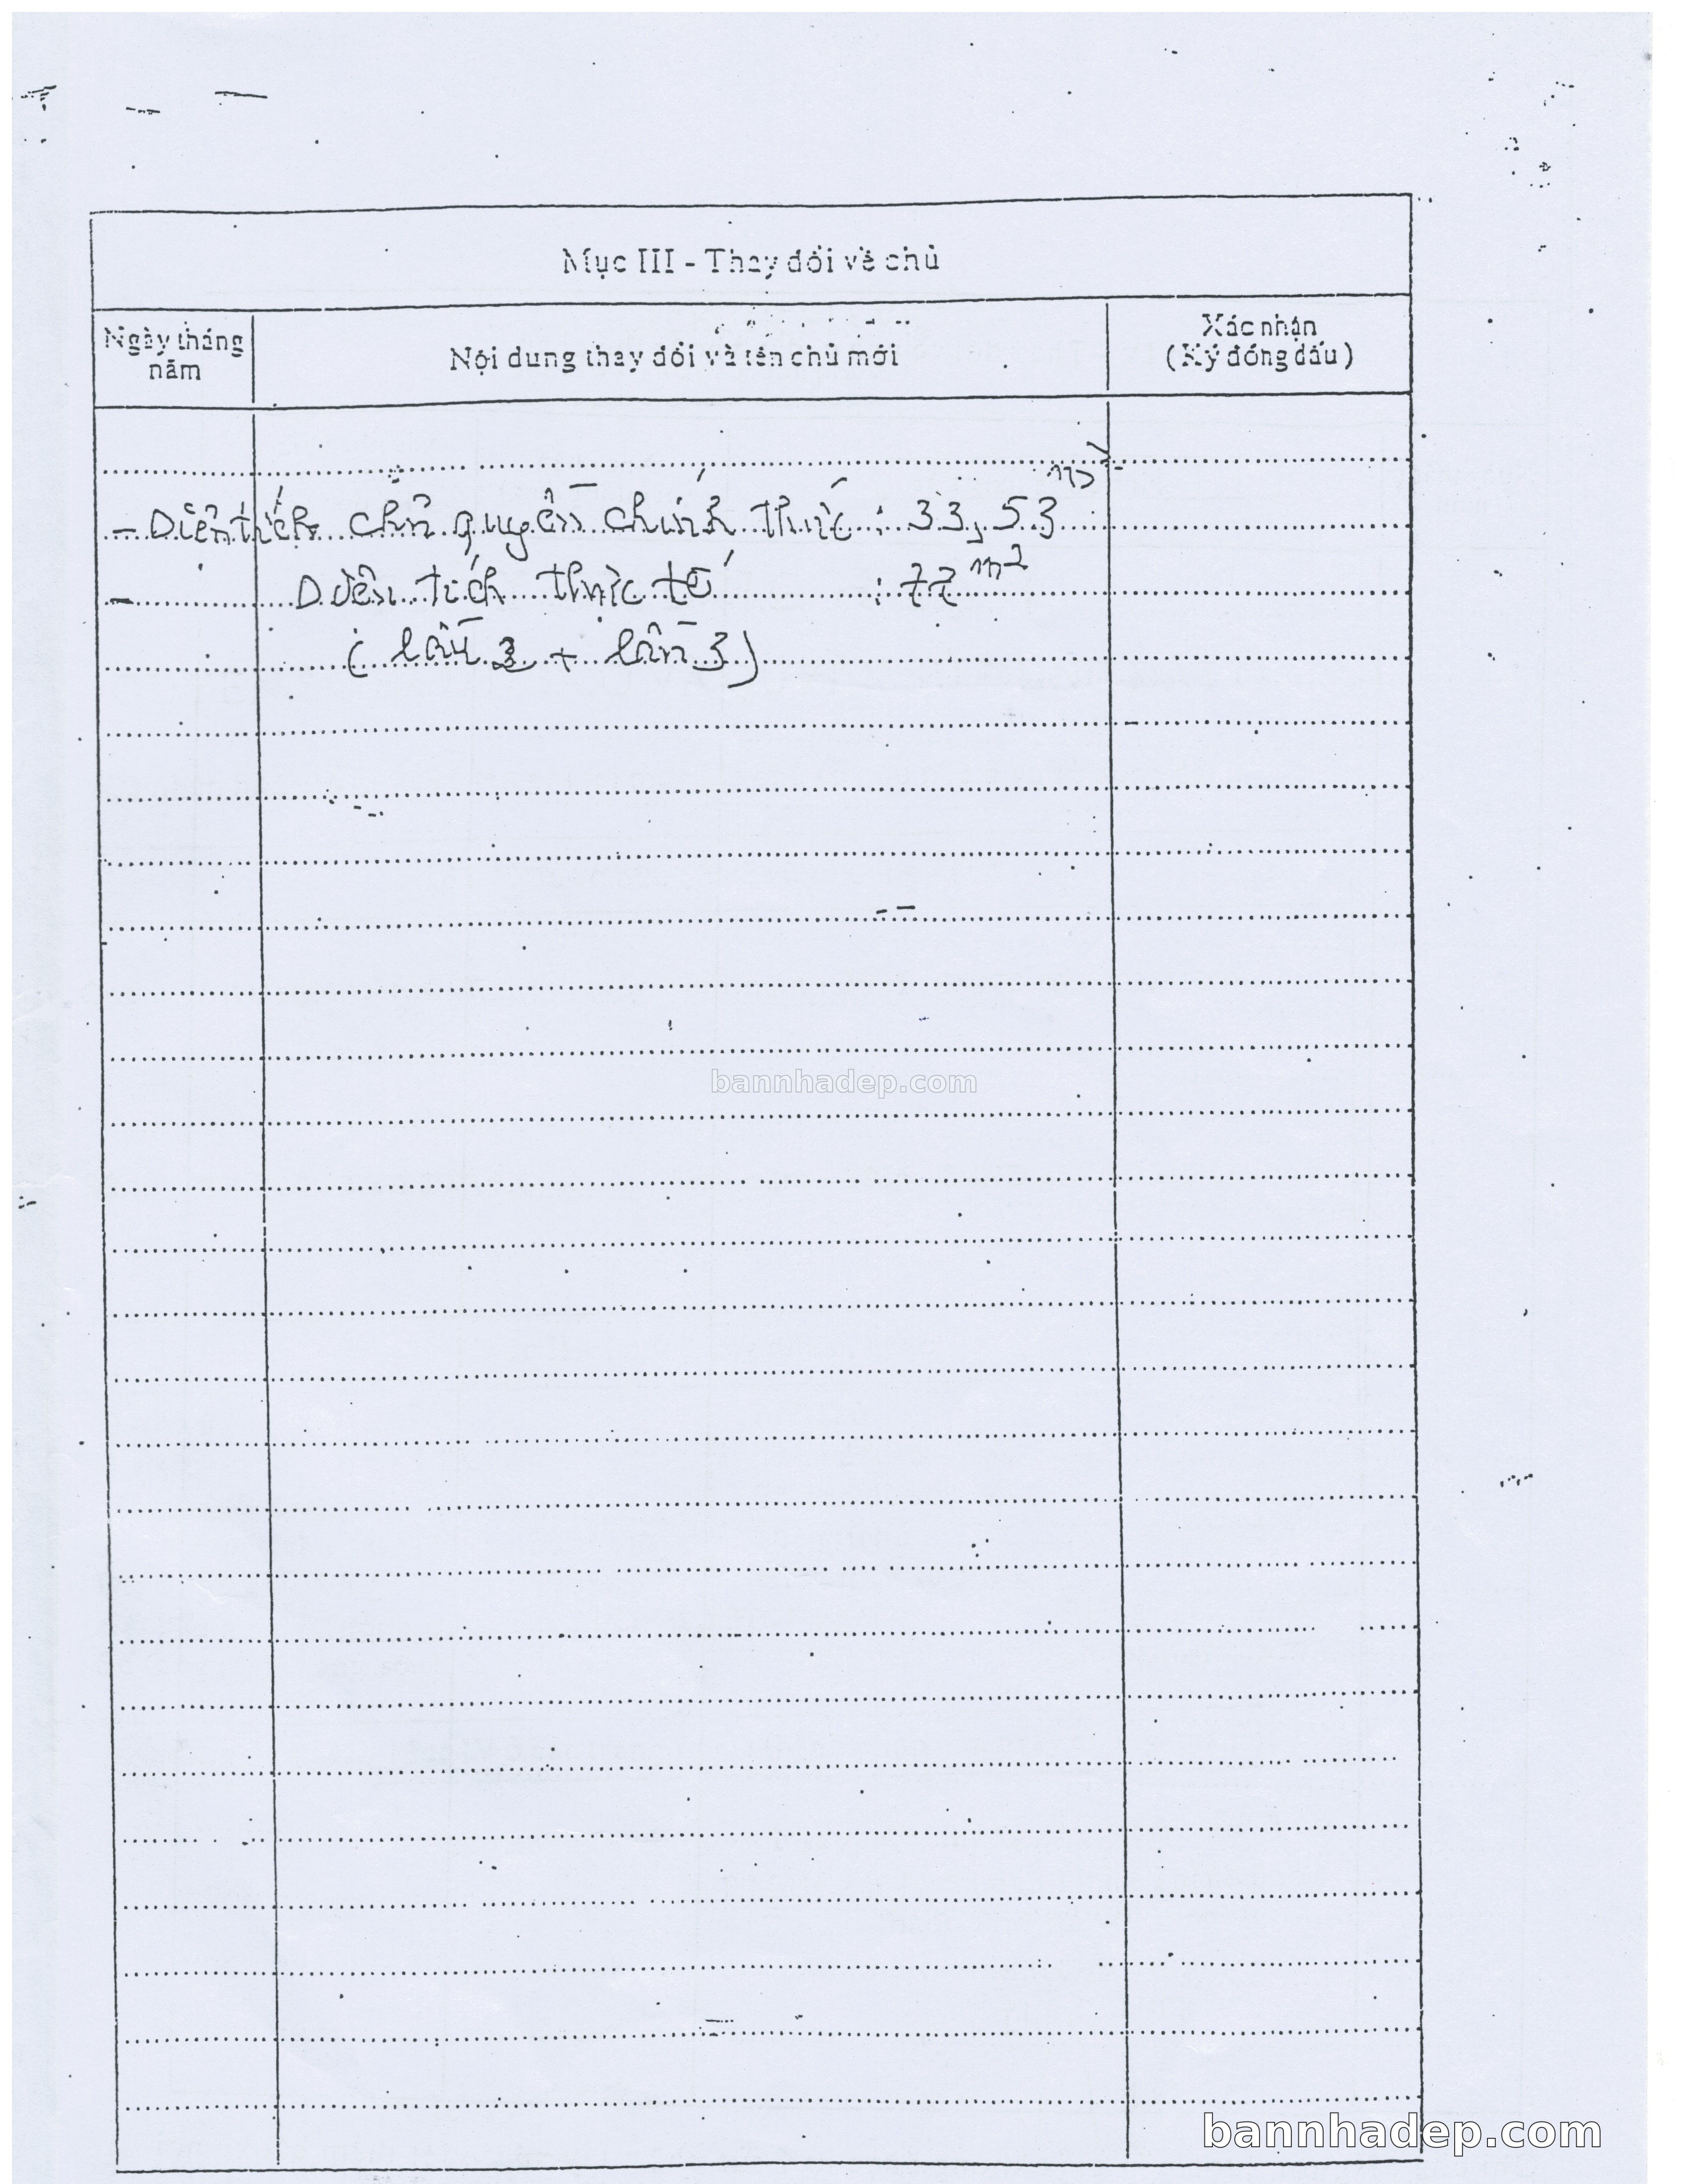 Mục III - Thay đổi về chủ
Ngày tháng năm
Nội dung thay đổi và tên chủ mới
Xác nhận
(Ký đóng dấu)
- Diện tích chủ quyền chính thức : 33,53 m2
- Diện tích thực tế : 77 m2
( lầu 2 + lầu 3)
bannhadep.com
bannhadep.com